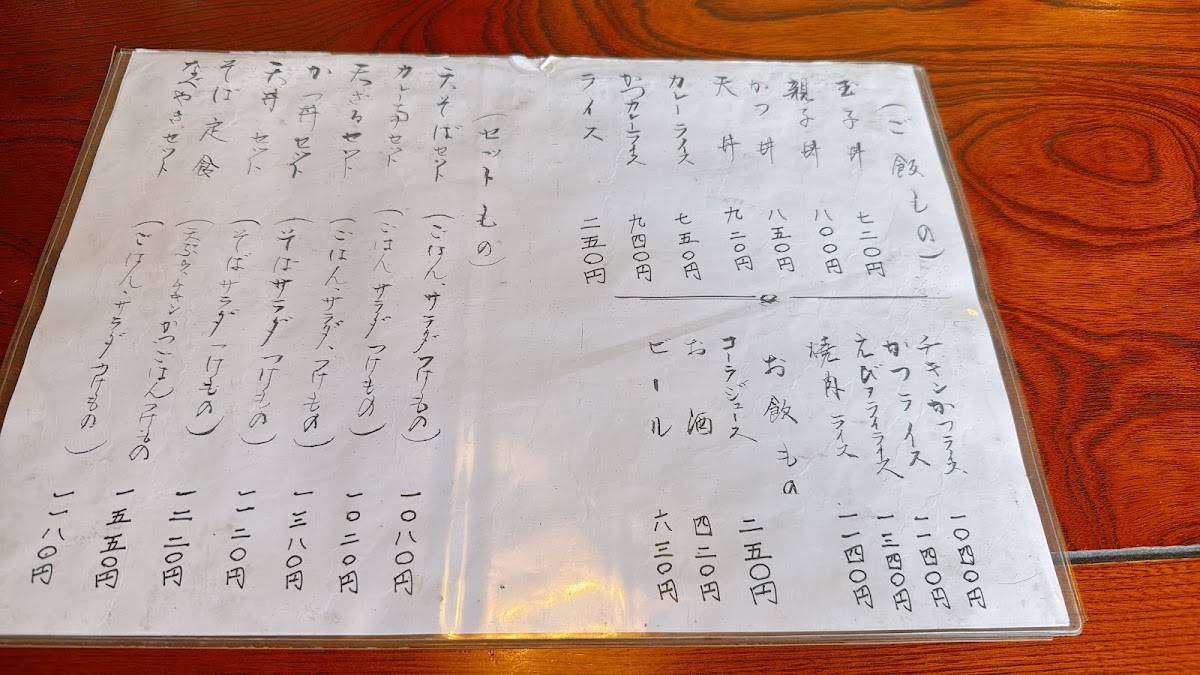 (ご飯もの)
玉子丼 七二〇円
親子丼 八〇〇円
かつ丼 八五〇円
天丼 九二〇円
カレーライス 七五〇円
かつカレーライス 九四〇円
ライス 二五〇円
チキンかつライス 一〇四〇円
かつライス 一一四〇円
えびフライライス 一三四〇円
焼肉ライス 一一四〇円
お飲もの
コーラジュース 二五〇円
お酒 四二〇円
ビール 六三〇円
(セットもの)
天そばセット (ごはん、サラダつけもの) 一〇八〇円
カレー南セット (ごはん、サラダつけもの) 一〇二〇円
天ざるセット (ごはん、サラダ、つけもの) 一三八〇円
かつ丼セット (そばサラダつけもの) 一一二〇円
天丼セット (そばサラダつけもの) 一二二〇円
そば定食 (天ぷら、チキンかつごはんつけもの 一五五〇円
なべやきセット (ごはん、サラダつけもの) 一一八〇円